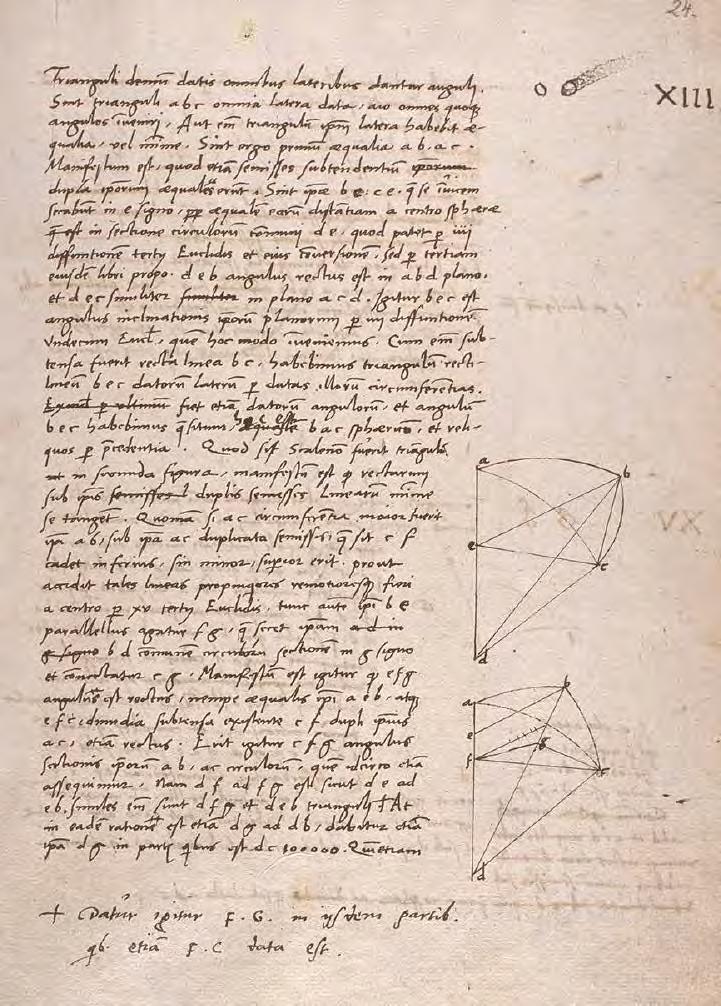 24.
XIII
Trianguli demū datis omnibus lateribus dantur anguli.
Sint trianguli a b c omnia latera data, aio omnes quoqꝫ
angulos īveniri, Aut em̄ triangulū ip̄m latera habebit æ-
qualia, vel mīme. Sint ergo primū æqualia a b. a c.
Manifestum est, quod etiā semisses subtendentiū
dupla ip̄orum æquales erūt. Sint ipæ b e: c e. q̄ se īvicem
secabūt in e signo, ꝓp̄ æqualē earū distātiam a centro sphæræ
q̄ est in sectione circulorū cōmuni d e. quod patet ꝑ iiii
diffinitionē tertij Euclidis et eius cōversionē, sed ꝑ tertiam
eiusdē libri propo. d e b angulus rectus est in a b d plano.
et d e c similiter in plano a c d. Igitur b e c est
angulus inclinationis ip̄orū planorum ꝑ iiii diffinitionē
Vndecim Eucl. quē hoc modo īveniemus. Cum em̄ sub-
tensa fuerit recta linea b c, habebimus triangulū recti-
lineū b e c datorū laterū ꝑ datas illorū circumferentias.
fiet etiā datorū angulorū, et angulū
b e c habebimus q̄situm, b a c sphæricū, et reli-
quos ꝑ p̄cedentia. Quod si Scalenō fuerit triāgulū
in secunda figura, manifestū est ꝙ rectarum
sub ip̄is duplis semisses lineæ mīme
se tangēt. Quoniā si a c circumferentia maior fuerit
ip̄a a b, sub ip̄a a c duplicata semissis, q̄ sit c f
cadet inferius, sin minor, superior erit. prout
accidit tales lineas propinquiores remotioresqꝫ fieri
a centro ꝑ xv tertij Euclidis, tunc autē ip̄i b e
parallelus agatur f g, q̄ secet ipsam
b d cōmunē circulorū sectionē in g signo
et connectatur c g. Manifestū est igitur ꝙ e f g
angulus est rectus, nempe æqualis ip̄i a e b, atqꝫ
e f c, dimidia subtensa existente c f dupli ip̄ius
a c, etiā rectus. Erit igitur c f g angulus
sectionis ip̄orū a b, a c circulorū, quē idcirco etiā
assequimur, Nam d f ad f g est sicut d e ad
e b. similes em̄ sunt d f g et d e b trianguli † At
in eadē ratione est etiā d g ad d b, dabitur etiā
ip̄a d g in partiꝰ quibus est d c 100000. Quetiam
a
b
e
c
d
a
b
e
f
g
c
d
+ Datur igitur F. G. in ijsdem partib.
qb. etiā F. C data est.